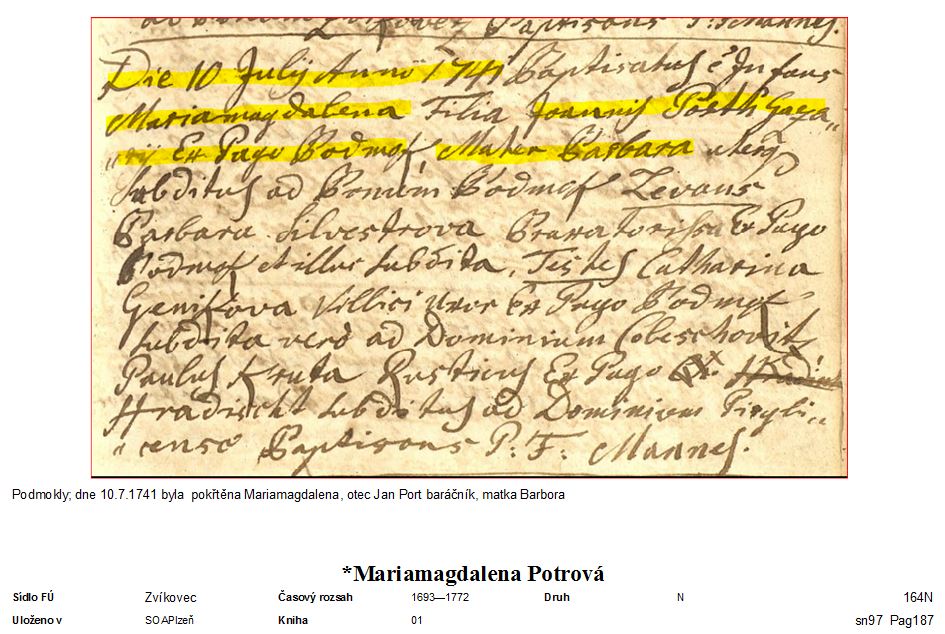 Baptisans P: Mannes.
Die 10 Julij Anno 1741 Baptisatus ē Infans
Mariamagdalena Filia Joannis Porth Gaza„
„rij Ex Pago Bodmokl, Mater Barbara
Subditus ad Bonum Bodmokl Levans
Barbara Silvestrova Ex Pago
Bodmokl et illuc subdita, Testes Catharina
Genikova Villici Uxor Ex Pago Bodmokl
subdita vero ad Dominium Cobeschovitz
Paulus Kruta Rusticus Ex Pago
Hradischt subditus ad Dominium Pirgli„
„cense Baptisans P. F. Mannes.
Podmokly; dne 10.7.1741 byla pokřtěna Mariamagdalena, otec Jan Port baráčník, matka Barbora
*Mariamagdalena Potrová
Sídlo FÚ Zvíkovec Časový rozsah 1693—1772 Druh N 164N
Uloženo v SOAPlzeň Kniha 01 sn97 Pag187